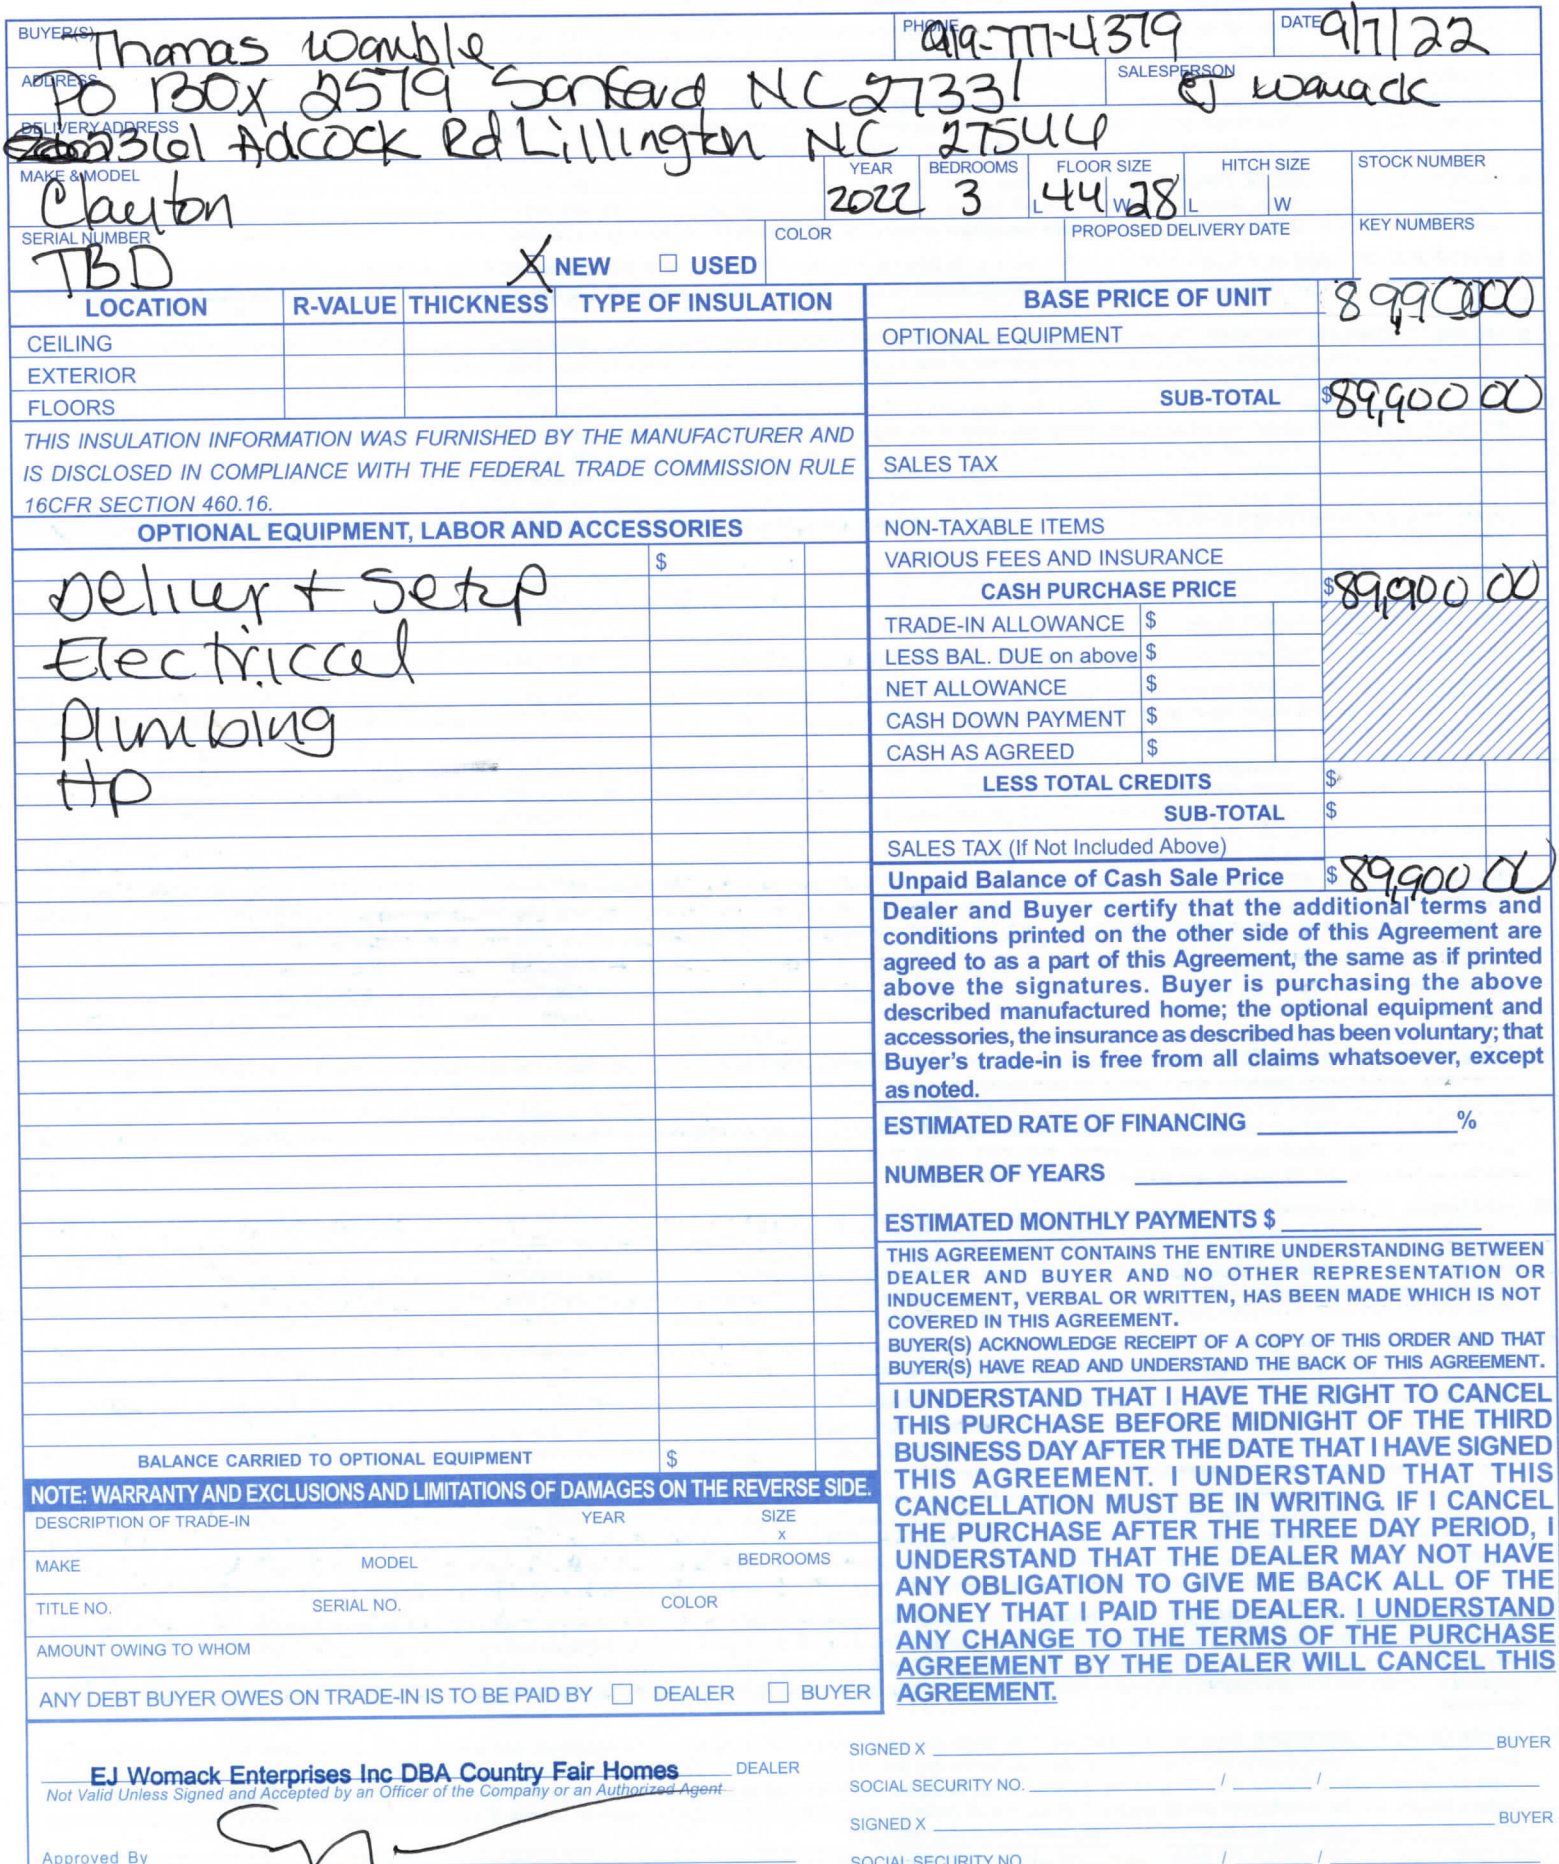 BUYER(S) Thomas Womble PHONE 919-777-4379 DATE 9/7/22
ADDRESS PO BOX 2579 Sanford NC 27331 SALESPERSON EJ Womack
DELIVERY ADDRESS 2361 Adcock Rd Lillington NC 27546
MAKE & MODEL Clayton YEAR 2022 BEDROOMS 3 FLOOR SIZE L 44 W 28 HITCH SIZE L W STOCK NUMBER
SERIAL NUMBER TBD X NEW ☐ USED COLOR PROPOSED DELIVERY DATE KEY NUMBERS
LOCATION R-VALUE THICKNESS TYPE OF INSULATION
CEILING
EXTERIOR
FLOORS
THIS INSULATION INFORMATION WAS FURNISHED BY THE MANUFACTURER AND
IS DISCLOSED IN COMPLIANCE WITH THE FEDERAL TRADE COMMISSION RULE
16CFR SECTION 460.16.
OPTIONAL EQUIPMENT, LABOR AND ACCESSORIES
$
Deliver + Setup
Electriccal
Plumbing
HP
BALANCE CARRIED TO OPTIONAL EQUIPMENT $
NOTE: WARRANTY AND EXCLUSIONS AND LIMITATIONS OF DAMAGES ON THE REVERSE SIDE.
DESCRIPTION OF TRADE-IN YEAR SIZE
x
MAKE MODEL BEDROOMS
TITLE NO. SERIAL NO. COLOR
AMOUNT OWING TO WHOM
ANY DEBT BUYER OWES ON TRADE-IN IS TO BE PAID BY ☐ DEALER ☐ BUYER
BASE PRICE OF UNIT 89,900 00
OPTIONAL EQUIPMENT
SUB-TOTAL $89,900 00
SALES TAX
NON-TAXABLE ITEMS
VARIOUS FEES AND INSURANCE
CASH PURCHASE PRICE $89,900 00
TRADE-IN ALLOWANCE $
LESS BAL. DUE on above $
NET ALLOWANCE $
CASH DOWN PAYMENT $
CASH AS AGREED $
LESS TOTAL CREDITS $
SUB-TOTAL $
SALES TAX (If Not Included Above)
Unpaid Balance of Cash Sale Price $89,900 00
Dealer and Buyer certify that the additional terms and
conditions printed on the other side of this Agreement are
agreed to as a part of this Agreement, the same as if printed
above the signatures. Buyer is purchasing the above
described manufactured home; the optional equipment and
accessories, the insurance as described has been voluntary; that
Buyer's trade-in is free from all claims whatsoever, except
as noted.
ESTIMATED RATE OF FINANCING %
NUMBER OF YEARS
ESTIMATED MONTHLY PAYMENTS $
THIS AGREEMENT CONTAINS THE ENTIRE UNDERSTANDING BETWEEN
DEALER AND BUYER AND NO OTHER REPRESENTATION OR
INDUCEMENT, VERBAL OR WRITTEN, HAS BEEN MADE WHICH IS NOT
COVERED IN THIS AGREEMENT.
BUYER(S) ACKNOWLEDGE RECEIPT OF A COPY OF THIS ORDER AND THAT
BUYER(S) HAVE READ AND UNDERSTAND THE BACK OF THIS AGREEMENT.
I UNDERSTAND THAT I HAVE THE RIGHT TO CANCEL
THIS PURCHASE BEFORE MIDNIGHT OF THE THIRD
BUSINESS DAY AFTER THE DATE THAT I HAVE SIGNED
THIS AGREEMENT. I UNDERSTAND THAT THIS
CANCELLATION MUST BE IN WRITING. IF I CANCEL
THE PURCHASE AFTER THE THREE DAY PERIOD, I
UNDERSTAND THAT THE DEALER MAY NOT HAVE
ANY OBLIGATION TO GIVE ME BACK ALL OF THE
MONEY THAT I PAID THE DEALER. I UNDERSTAND
ANY CHANGE TO THE TERMS OF THE PURCHASE
AGREEMENT BY THE DEALER WILL CANCEL THIS
AGREEMENT.
EJ Womack Enterprises Inc DBA Country Fair Homes DEALER
Not Valid Unless Signed and Accepted by an Officer of the Company or an Authorized Agent
Approved By
SIGNED X BUYER
SOCIAL SECURITY NO. / /
SIGNED X BUYER
SOCIAL SECURITY NO. / /